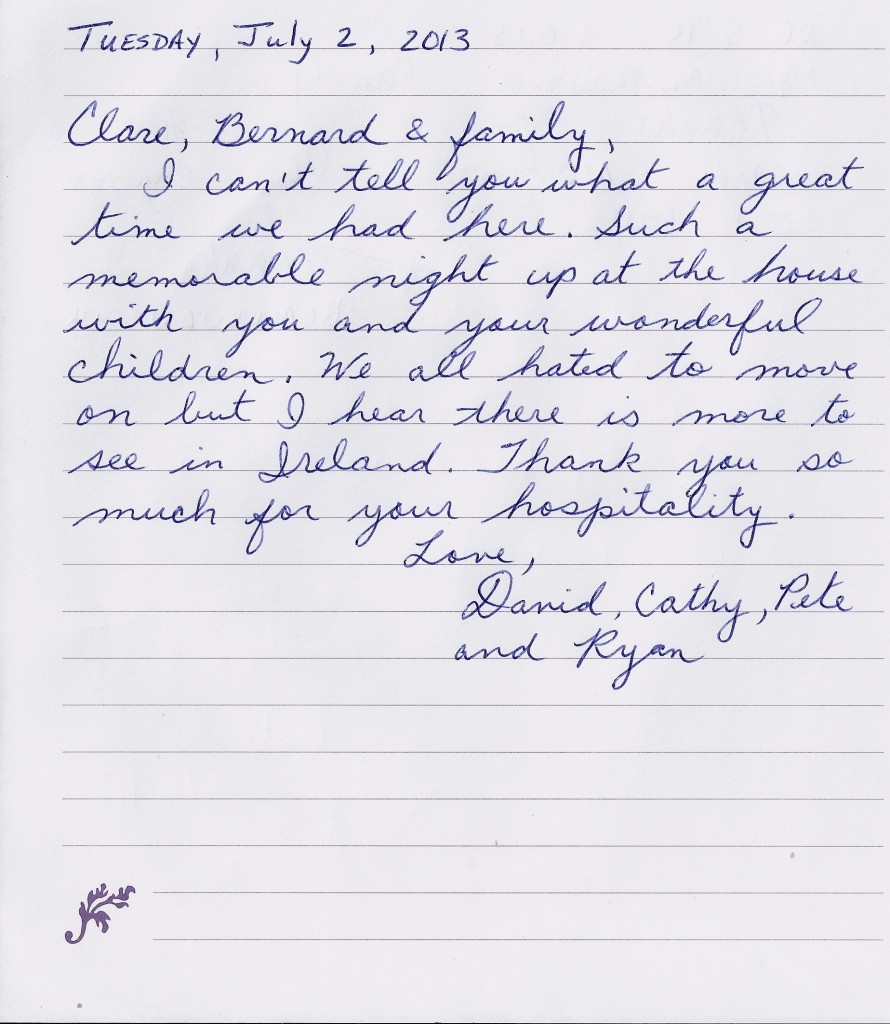 TUESDAY, July 2, 2013
Clare, Bernard & family,
I can't tell you what a great
time we had here. Such a
memorable night up at the house
with you and your wonderful
children. We all hated to move
on but I hear there is more to
see in Ireland. Thank you so
much for your hospitality.
Love,
David, Cathy, Pete
and Ryan